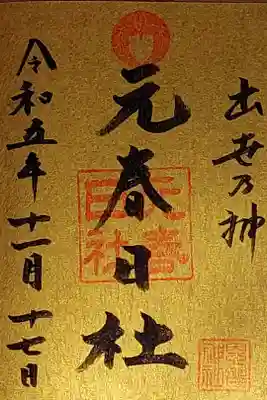 出世乃神
元春日社
令和五年十一月十七日